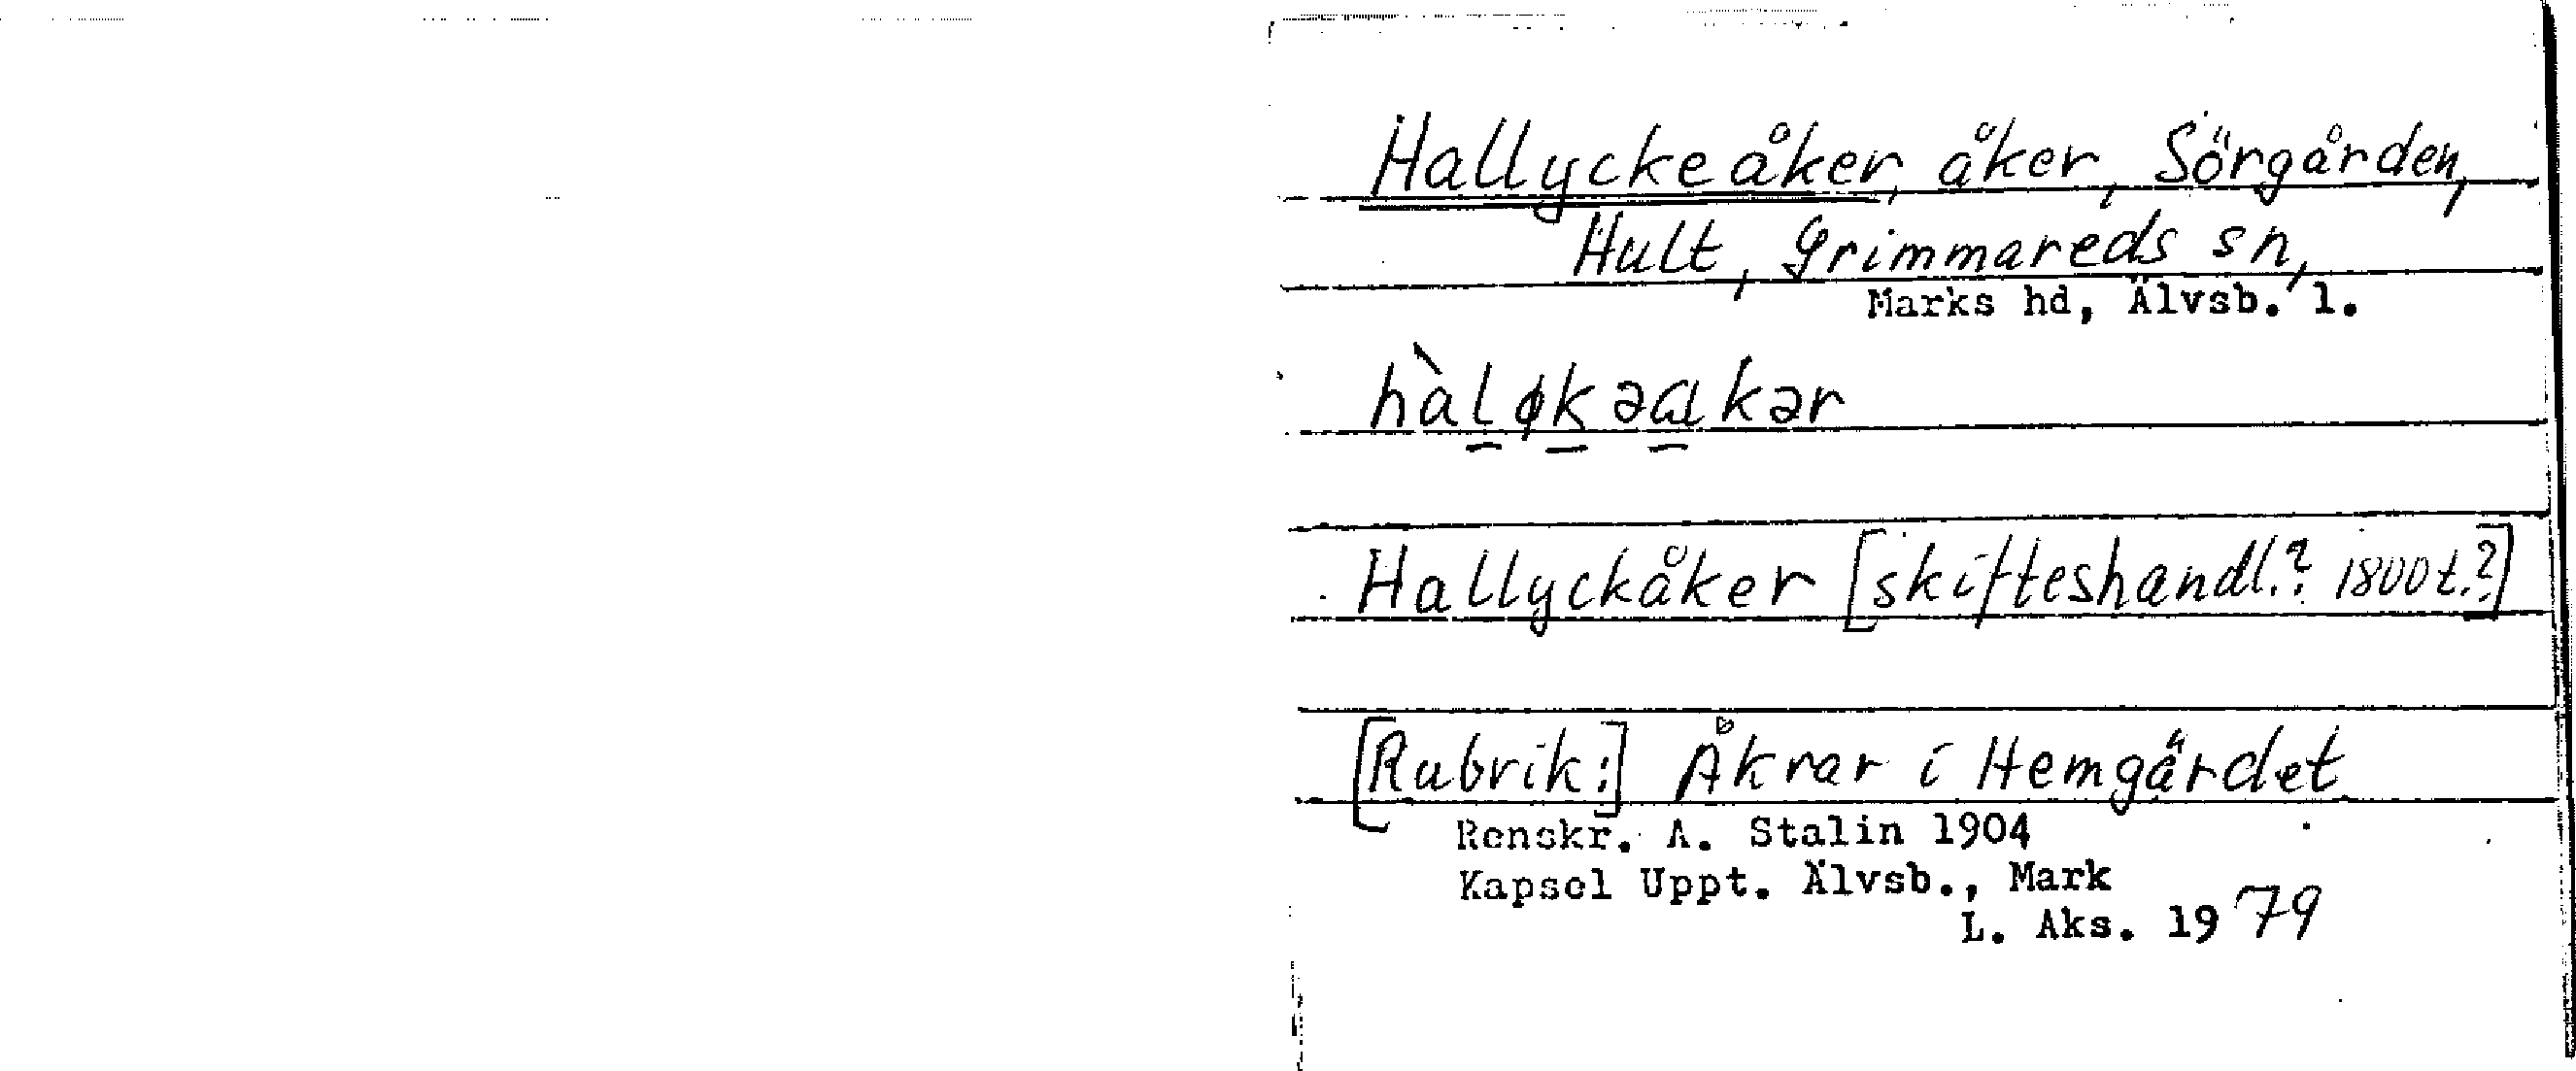 Hallyckeåker, åker, Sörgården,
Hult, Grimmareds sn,
Marks hd, Älvsb. l.
hàløkəɑkər
Hallyckåker [skifteshandl.? 1800t.?]
[Rubrik:] Åkrar i Hemgärdet
Renskr. A. Stalin 1904
Kapsel Uppt. Älvsb., Mark
L. Aks. 1979